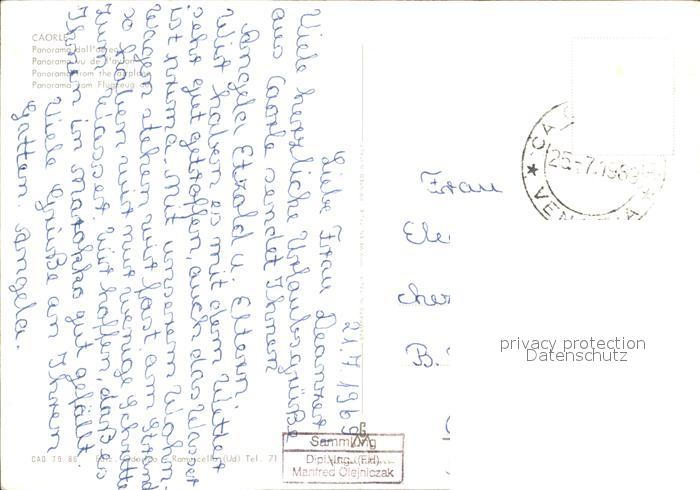 CAORLE
Panorama dall'aereo
Panorama vu de l'avion
Panorama from the airplane
Panorama vom Flugzeug aus
21.7.1969
Liebe Frau
Viele herzliche Urlaubsgrüße
aus Caorle sendet Ihnen
Angela Etzold u. Eltern.
Wir haben es mit dem Wetter
sehr gut getroffen, auch das Wasser
ist prima. Mit unserem Wohn-
wagen stehen wir fast am Strand
so haben wir nur wenige Schritte
zum Wasser. Wir hoffen, daß es
Ihnen in Marokko gut gefällt.
Viele Grüße an Ihren
Gatten. Angela.
Frau
25.-7.1969
VENEZIA
privacy protection
Datenschutz
CAO 79/86
Tel. 71
Sammlung
Dipl.-Ing. (FH)
Manfred Olejniczak